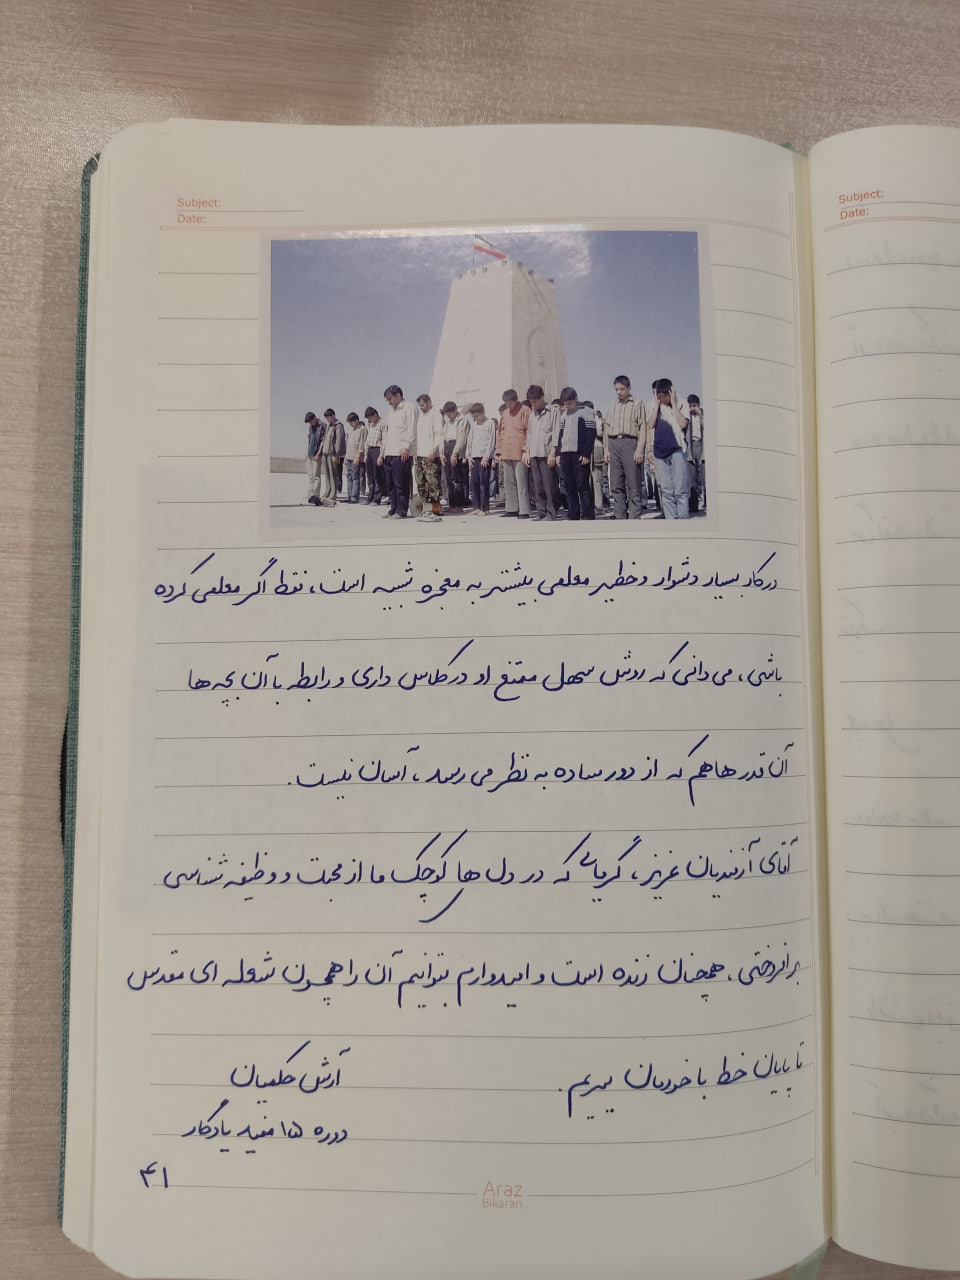 Subject:
Date:
Subject:
Date:
در کار بسیار دشوار و خطیر معلمی بیشتر به معجزه شبیه است، فقط اگر معلمی کرده
باشی، می دانی که روش سهل ممتنع او در کلاس داری و رابطه با آن بچه ها
آن قدرها هم که از دور ساده به نظر می رسد، آسان نیست.
آقای آزندیان عزیز، گرمایی که در دل های کوچک ما از محبت و وظیفه شناسی
برافروختی، همچنان زنده است و امیدوارم بتوانیم آن را همچون شعله ای مقدس
تا پایان خط با خودمان ببریم.
آرش حکمیان
دوره ۱۵ مفید یادگار
۴۱
Araz
Bikaran